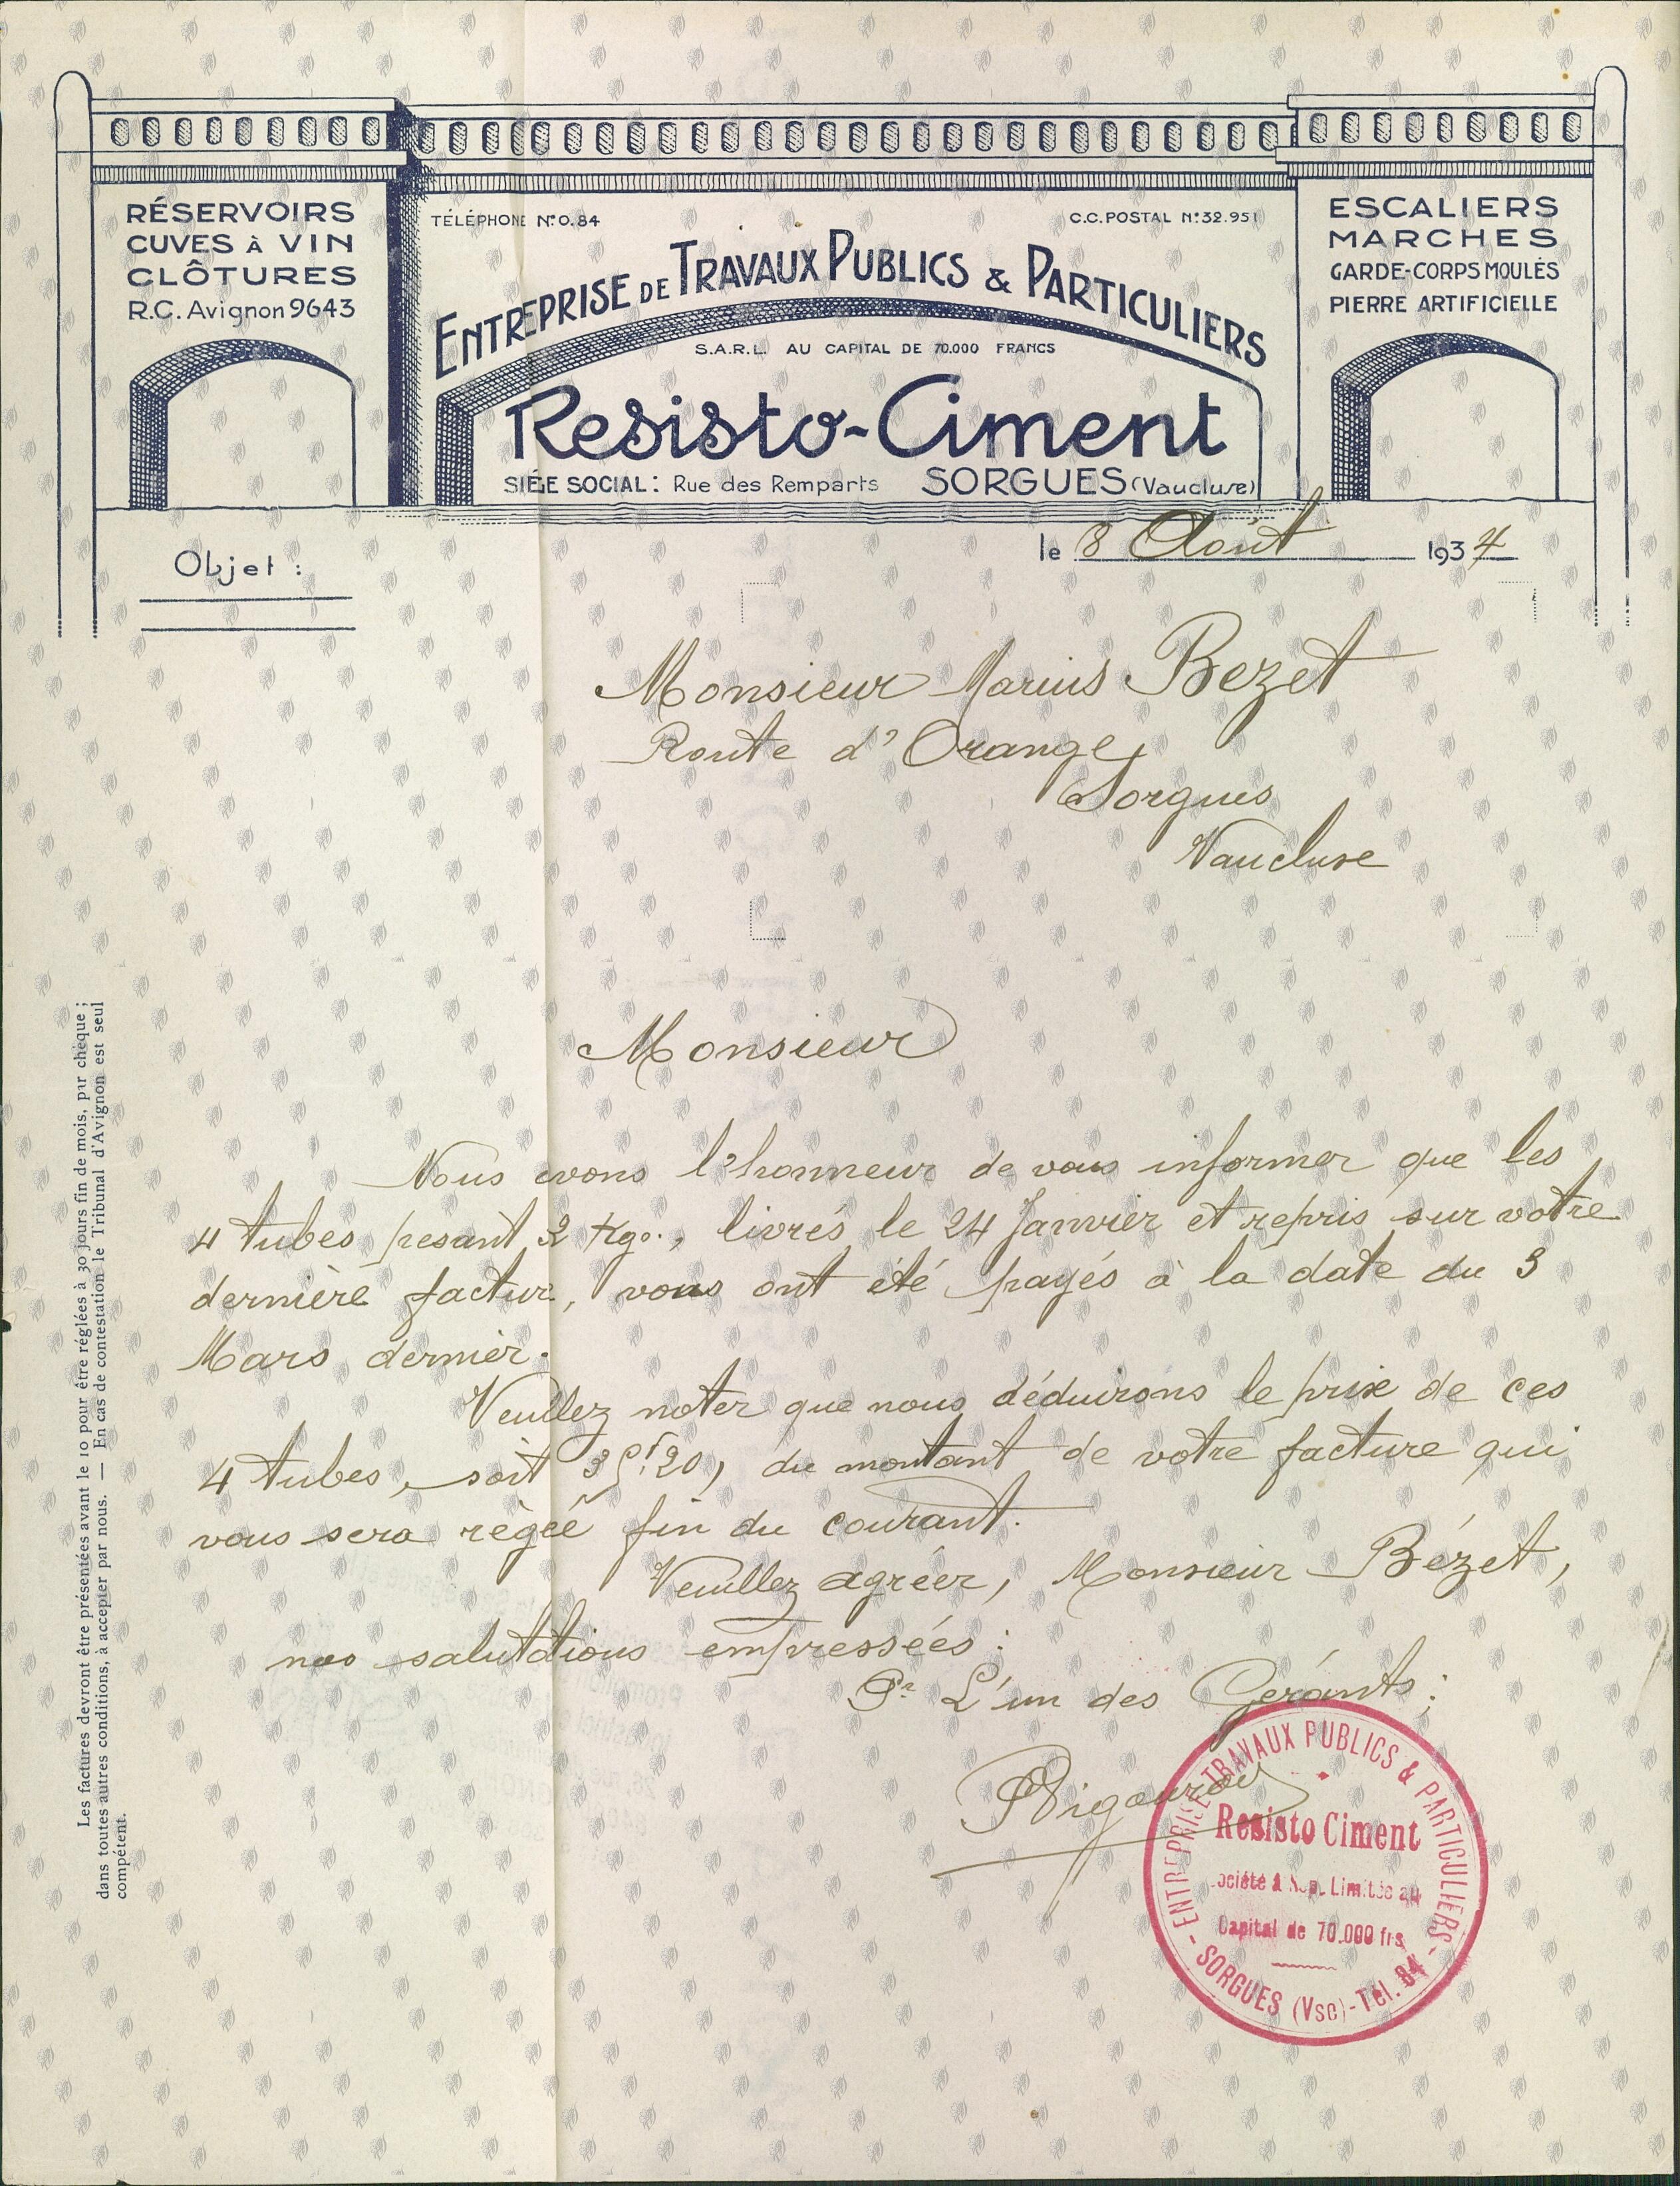 RÉSERVOIRS
CUVES À VIN
CLÔTURES
R.C. Avignon 9643
TÉLÉPHONE N° 0.84
C.C. POSTAL N° 32.951
ENTREPRISE DE TRAVAUX PUBLICS & PARTICULIERS
S.A.R.L. AU CAPITAL DE 70.000 FRANCS
Resisto-Ciment
SIÉGE SOCIAL : Rue des Remparts SORGUES (Vaucluse)
ESCALIERS
MARCHES
GARDE-CORPS MOULÉS
PIERRE ARTIFICIELLE
le 8 Août 1934
Objet :
Monsieur Marius Bezet
Route d'Orange
Sorgues
Vaucluse
Monsieur
Nous avons l'honneur de vous informer que les
4 tubes pesant 2 Kgs., livrés le 24 Janvier et repris sur votre
dernière factur, vous ont été payés à la date du 3
Mars dernier.
Veuillez noter que nous déduirons le prix de ces
4 tubes, soit 20, du montant de votre facture qui
vous sera régée fin du courant.
Veuillez agréer, Monsieur Bézet,
nos salutations empressées :
Pr L'un des Gérants :
Les factures devront être présentées avant le 10 pour être réglées à 30 jours fin de mois, par chèque ;
dans toutes autres conditions, à accepter par nous. — En cas de contestation le Tribunal d'Avignon est seul
compétent.
ENTREPRISE TRAVAUX PUBLICS & PARTICULIERS
Resisto Ciment
ociété à Limitée au
Capital de 70.000 frs
- SORGUES (Vse) - Tél. 84 -